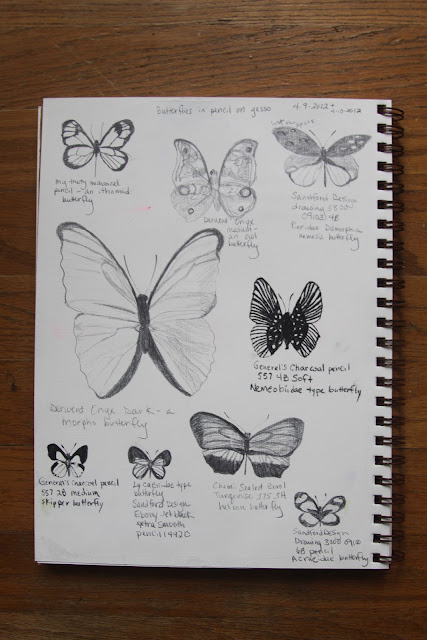 Butterflies in pencil on gesso
4.9.2012 +
4.10.2012
my trusty mechanical
pencil - an ithomiid
butterfly
Derwent Onyx
medium -
an owl
butterfly
Sanford Design
drawing 3800
4B
Pieridae Dismorphia
nemesis butterfly
Derwent Onyx Dark - a
morpho butterfly
General's Charcoal pencil
557 4B Soft
Nemeobiidae type butterfly
General's Charcoal pencil
557 2B medium
skipper butterfly
Lycaenidae type
butterfly
Sanford Design
Ebony - jet black
extra smooth
pencil 14420
butterfly
Sanford Design
Drawing 3800
6B pencil
butterfly